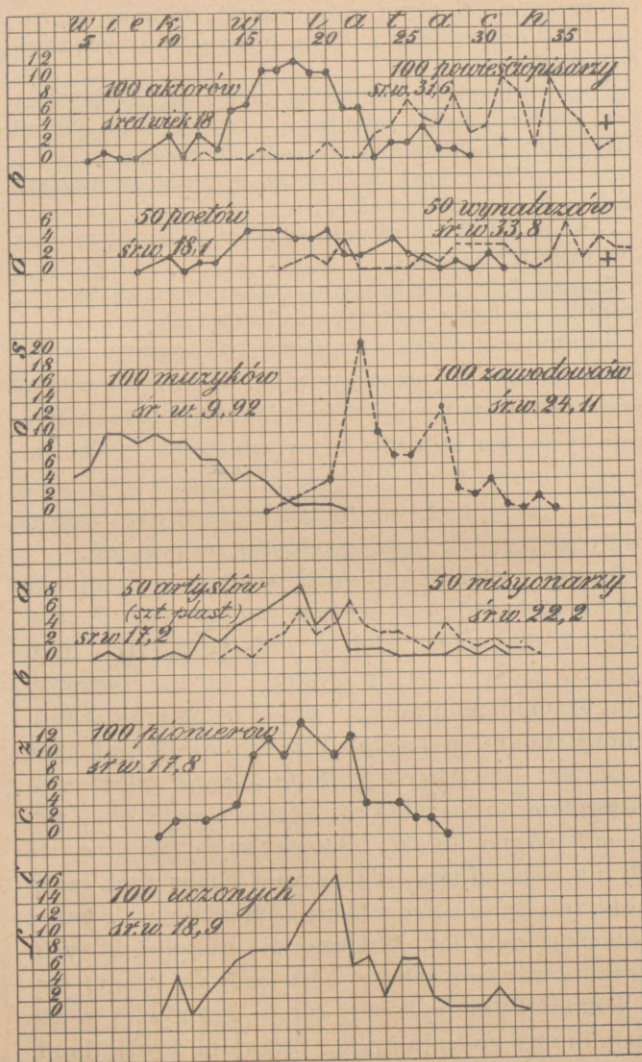 Wiek w latach
5 10 15 20 25 30 35
Liczba osób
12
10
8
6
4
2
0
100 aktorów
śred wiek 18
100 powieściopisarzy
śr.w. 31,6
+
6
4
2
0
50 poetów
śr.w. 18,1
50 wynalazców
śr. w. 33,8
+
20
18
16
14
12
10
8
6
4
2
0
100 muzyków
śr. w. 9,92
100 zawodowców
śr.w. 24,11
8
6
4
2
0
50 artystów
(szt. plast.)
śr.w. 17,2
50 misyonarzy
śr.w. 22,2
12
10
8
6
4
2
0
100 pionierów
śr.w. 17,8
16
14
12
10
8
6
4
2
0
100 uczonych
śr.w. 18,9